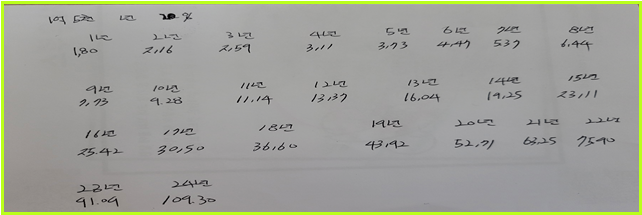 1억 5천 1년 20%
1년 2년 3년 4년 5년 6년 7년 8년
1,80 2,16 2,59 3,11 3,73 4,47 5,37 6,44
9년 10년 11년 12년 13년 14년 15년
7,73 9.28 11,14 13,37 16,04 19,25 23,11
16년 17년 18년 19년 20년 21년 22년
25.42 30,50 36,60 43,92 52,71 63,25 75,90
23년 24년
91.09 109.30